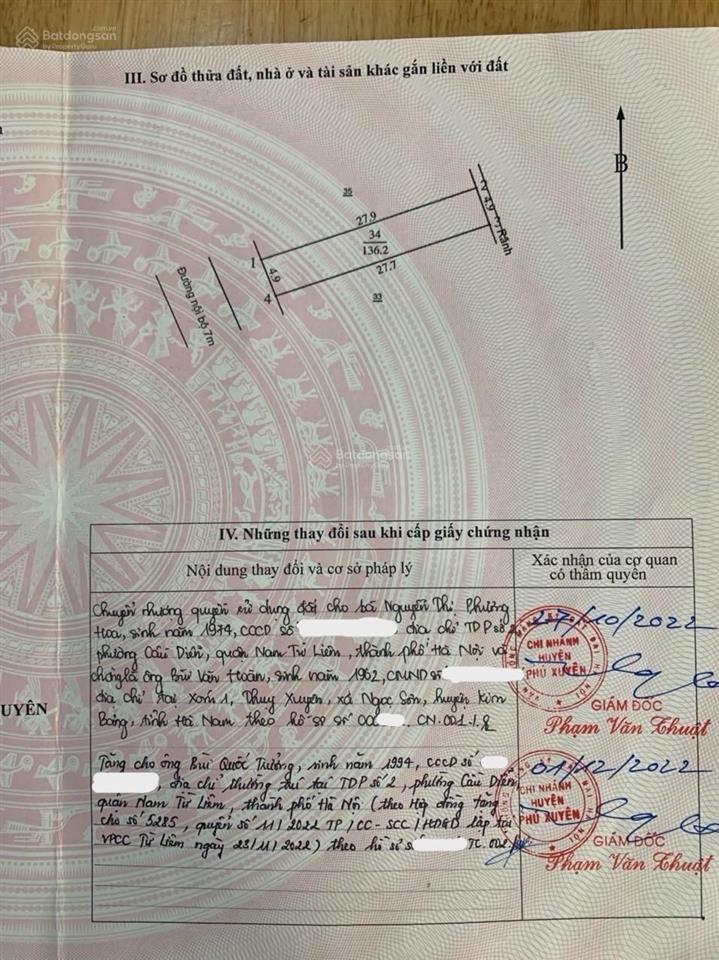 Batdongsan
by PropertyGuru
III. Sơ đồ thửa đất, nhà ở và tài sản khác gắn liền với đất
B
35
27.9
2 4.9 3
Rãnh
34
136.2
1
4.9
4
27.7
33
Đường nội bộ 7m
Batdongsan
by PropertyGuru
UYÊN
IV. Những thay đổi sau khi cấp giấy chứng nhận
Nội dung thay đổi và cơ sở pháp lý
Xác nhận của cơ quan
có thẩm quyền
Chuyển nhượng quyền sử dụng đất cho bà Nguyễn Thị Phương
Hoa, sinh năm 1974, CCCD số địa chỉ TDP số
phường Cầu Diễn, quận Nam Từ Liêm, thành phố Hà Nội và
chồng là ông Bùi Văn Hoàn, sinh năm 1962, CMND số
địa chỉ tại Xóm 1, Thụy Xuyên, xã Ngọc Sơn, huyện Kim
Bảng, tỉnh Hà Nam theo hồ sơ số 00 .CN.001.
27/10/2022
CHI NHÁNH
HUYỆN
PHÚ XUYÊN
GIÁM ĐỐC
Phạm Văn Thuật
Tặng cho ông Bùi Quốc Trưởng, sinh năm 1994, CCCD số
, địa chỉ thường trú tại TDP số 2, phường Cầu Diễn
quận Nam Từ Liêm, thành phố Hà Nội (theo Hợp đồng tặng
cho số 5285, quyển số 11/2022 TP/CC-SCC/HĐGD lập tại
VPCC Từ Liêm ngày 23/11/2022) theo hồ sơ số TC.002
01/12/2022
CHI NHÁNH
HUYỆN
PHÚ XUYÊN
GIÁM ĐỐC
Phạm Văn Thuật